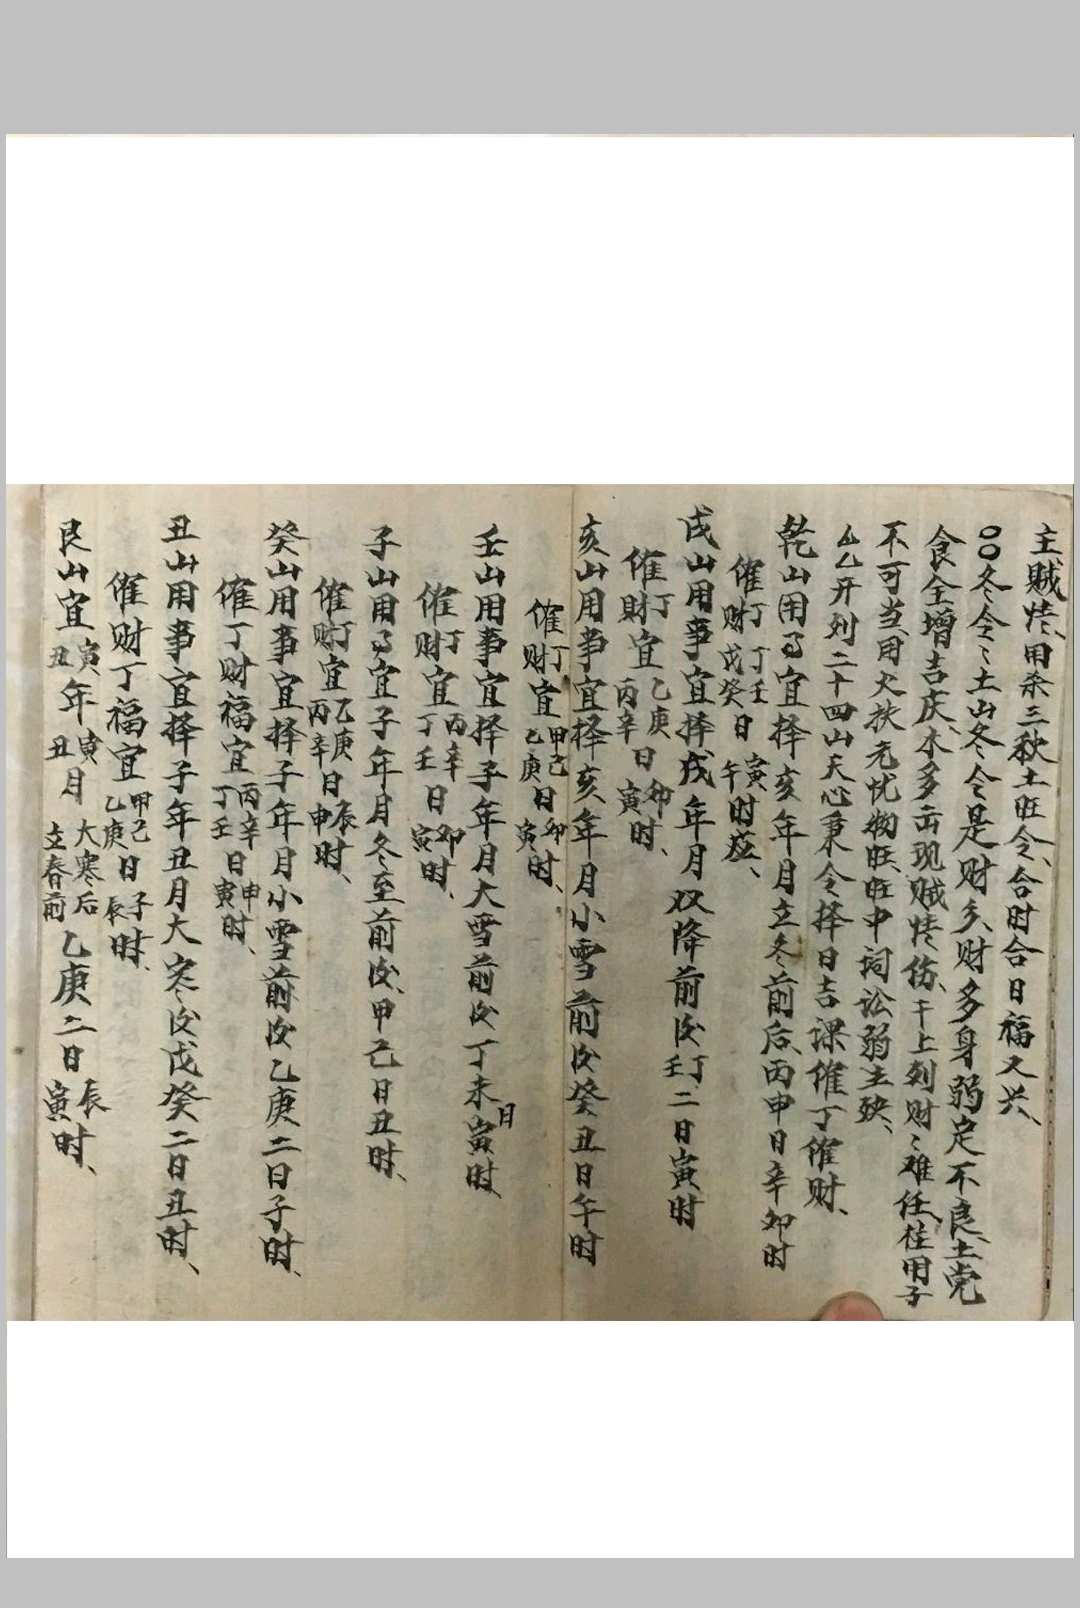 主贼怪、用杀三秋土旺令、合时合日福又兴、
〇〇冬令令土山冬令是财乡、财多身弱定不良、土党
食全增吉庆、木多出现贼怪伤、干上列财财难任、柱用子
不可当、用火扶元忧物旺、旺中词讼弱主殃、
厶乙开列二十四山天心秉令择日吉课催丁催财、
乾山用事宜择亥年月立冬前后、丙申日辛卯时
催丁财丁壬戊癸日寅午时应、
戌山用事宜择戌年月双降前后丁壬二日寅时
催丁财宜乙庚丙辛日卯寅时、
亥山用事宜择亥年月小雪前后癸丑日午时
催丁财宜甲己乙庚日卯寅时、
壬山用事宜择子年月大雪前后丁未日寅时、
催丁财宜丙辛丁壬日卯寅时、
子山用事宜子年月冬至前后、甲己日丑时、
催丁财宜乙庚丙辛日辰申时、
癸山用事宜择子年月小雪前后乙庚二日子时、
催丁财福宜丙辛丁壬日申寅时、
丑山用事宜择子年丑月大寒后戊癸二日丑时、
催财丁福宜甲己乙庚日子辰时、
艮山宜寅丑年寅丑月大寒后立春前乙庚二日辰寅时、